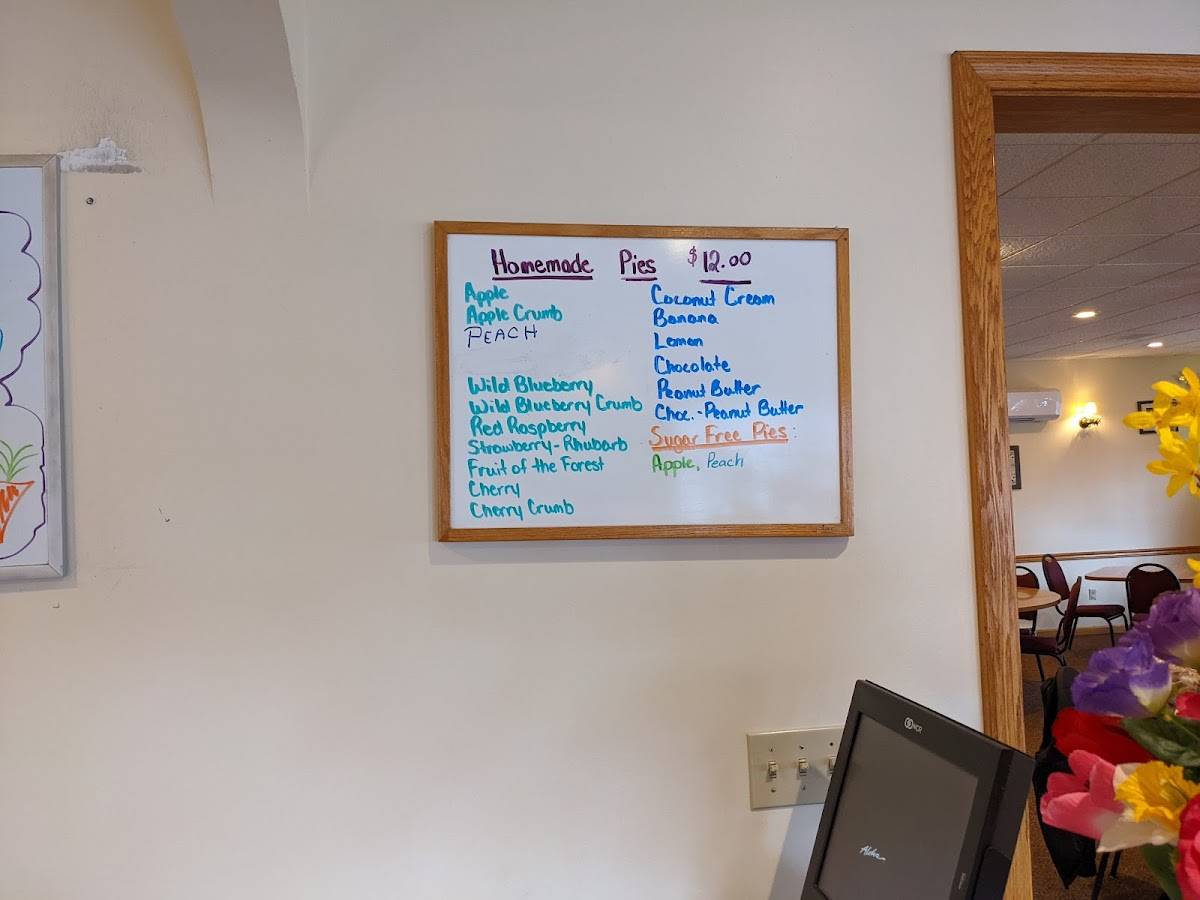 Homemade Pies $12.00
Apple
Apple Crumb
PEACH
Wild Blueberry
Wild Blueberry Crumb
Red Raspberry
Strawberry-Rhubarb
Fruit of the Forest
Cherry
Cherry Crumb
Coconut Cream
Banana
Lemon
Chocolate
Peanut Butter
Choc.-Peanut Butter
Sugar Free Pies:
Apple, Peach
NCR
Aloha